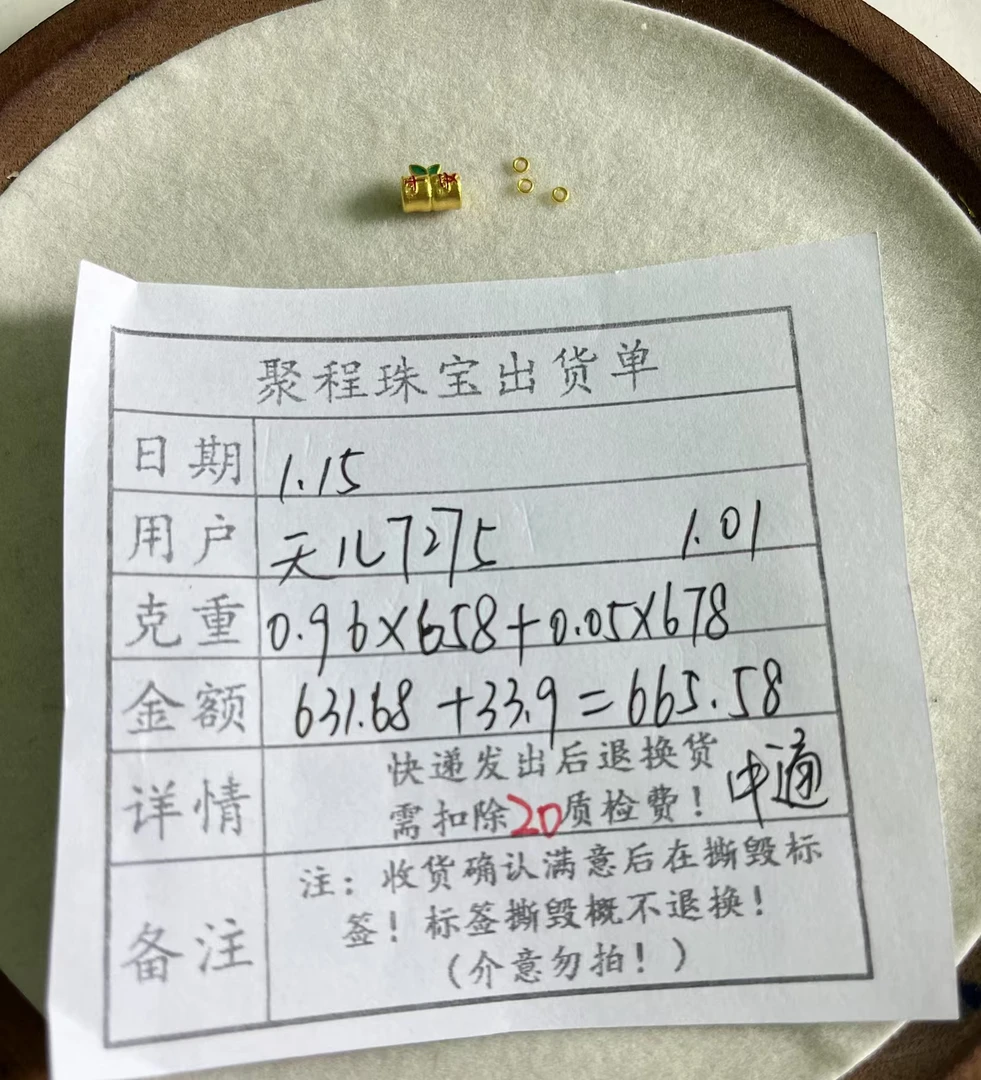 聚程珠宝出货单
日期 1.15
用户 天儿7275 1.01
克重 0.96×658+0.05×678
金额 631.68+33.9=665.58
详情 快递发出后退换货
需扣除20质检费! 中通
备注 注:收货确认满意后在撕毁标
签!标签撕毁概不退换!
(介意勿拍!)